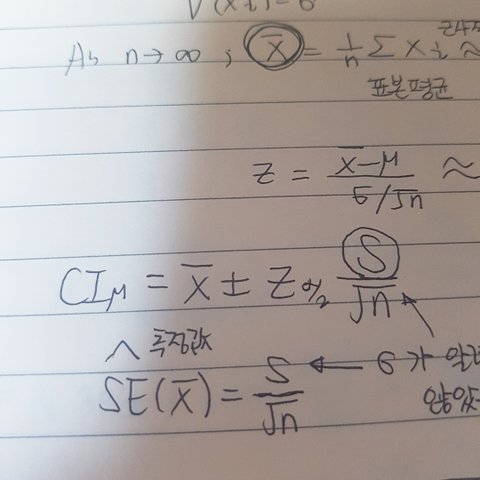 V(Xi)=σ
As n→∞ ; X̄ = 1/n Σ Xi ≈
표본평균
Z = (X̄-μ)/(σ/√n) ≈
CIμ = X̄ ± Zα/2 S/√n
^ 추정값
SE(X̄) = S/√n ← σ가